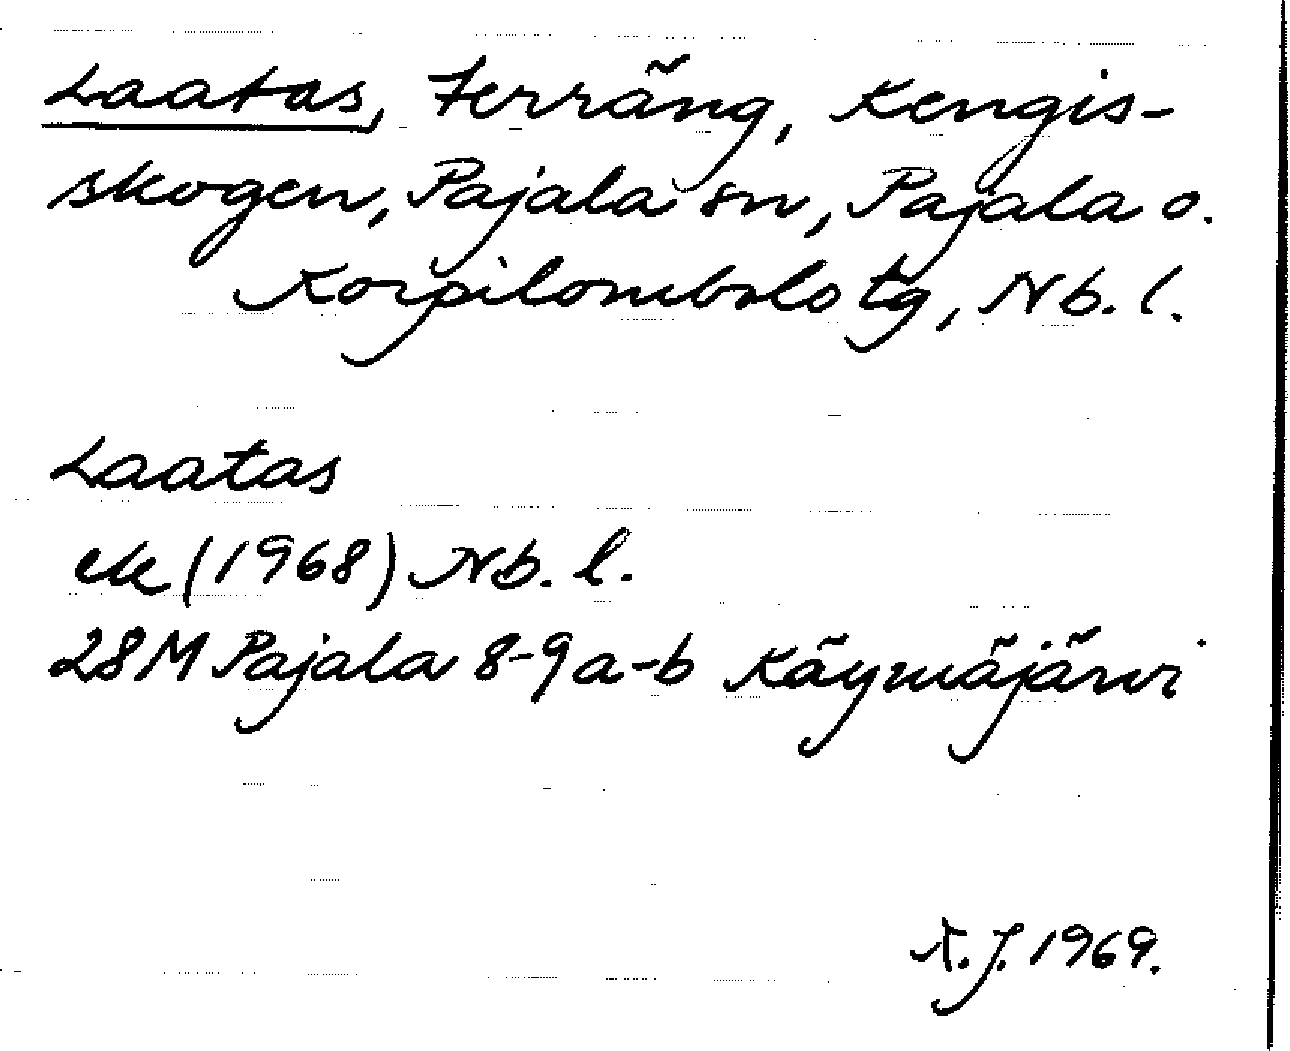 Laatas, Terräng, Kengis-
skogen, Pajala sn, Pajala o.
Korpilombolo tg, Nb. l.
Laatas
ek (1968) Nb. l.
28M Pajala 8-9a-b Käymäjärvi
A.J. 1969.